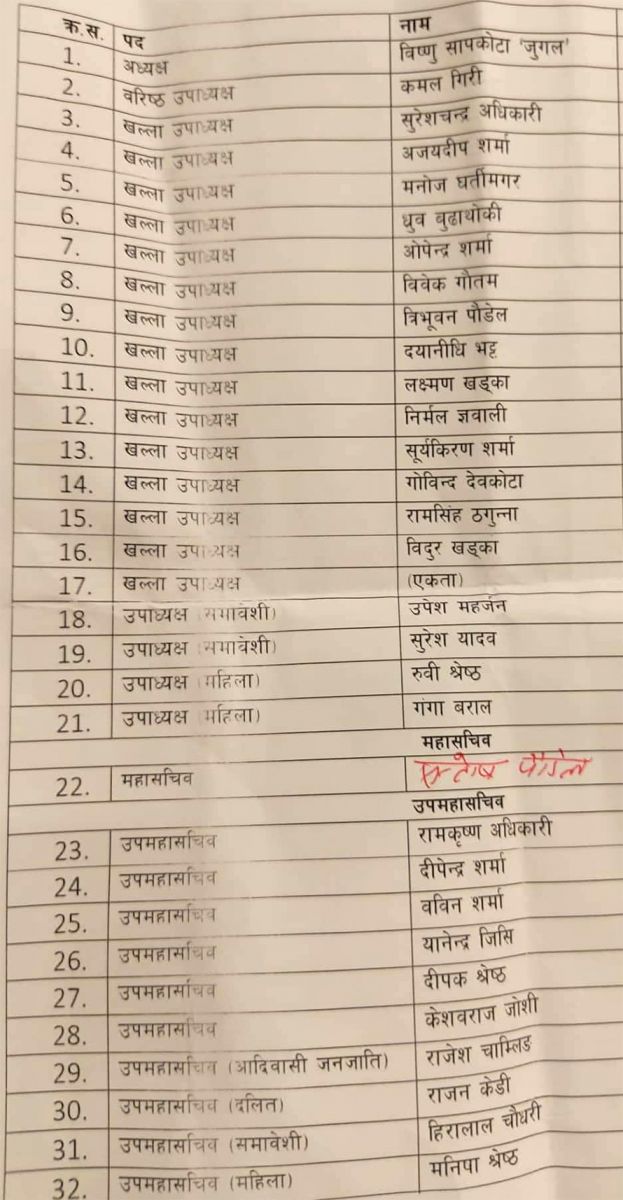 क्र.स. पद नाम
1. अध्यक्ष विष्णु सापकोटा 'जुगल'
2. वरिष्ठ उपाध्यक्ष कमल गिरी
3. खुल्ला उपाध्यक्ष सुरेशचन्द्र अधिकारी
4. खुल्ला उपाध्यक्ष अजयदीप शर्मा
5. खुल्ला उपाध्यक्ष मनोज घर्तीमगर
6. खुल्ला उपाध्यक्ष ध्रुव बुढाथोकी
7. खुल्ला उपाध्यक्ष ओपेन्द्र शर्मा
8. खुल्ला उपाध्यक्ष विवेक गौतम
9. खुल्ला उपाध्यक्ष त्रिभूवन पौडेल
10. खुल्ला उपाध्यक्ष दयानीधि भट्ट
11. खुल्ला उपाध्यक्ष लक्ष्मण खड्का
12. खुल्ला उपाध्यक्ष निर्मल ज्ञवाली
13. खुल्ला उपाध्यक्ष सूर्यकिरण शर्मा
14. खुल्ला उपाध्यक्ष गोविन्द देवकोटा
15. खुल्ला उपाध्यक्ष रामसिंह ठगुन्ना
16. खुल्ला उपाध्यक्ष विदुर खड्का
17. खुल्ला उपाध्यक्ष (एकता)
18. उपाध्यक्ष (समावेशी) उपेश महर्जन
19. उपाध्यक्ष (समावेशी) सुरेश यादव
20. उपाध्यक्ष (महिला) रुवी श्रेष्ठ
21. उपाध्यक्ष (महिला) गंगा बराल
महासचिव
22. महासचिव सन्तोष पौडेल
उपमहासचिव
23. उपमहासचिव रामकृष्ण अधिकारी
24. उपमहासचिव दीपेन्द्र शर्मा
25. उपमहासचिव वविन शर्मा
26. उपमहासचिव यानेन्द्र जिसि
27. उपमहासचिव दीपक श्रेष्ठ
28. उपमहासचिव केशवराज जोशी
29. उपमहासचिव (आदिवासी जनजाति) राजेश चाम्लिङ
30. उपमहासचिव (दलित) राजन केडी
31. उपमहासचिव (समावेशी) हिरालाल चौधरी
32. उपमहासचिव (महिला) मनिपा श्रेष्ठ